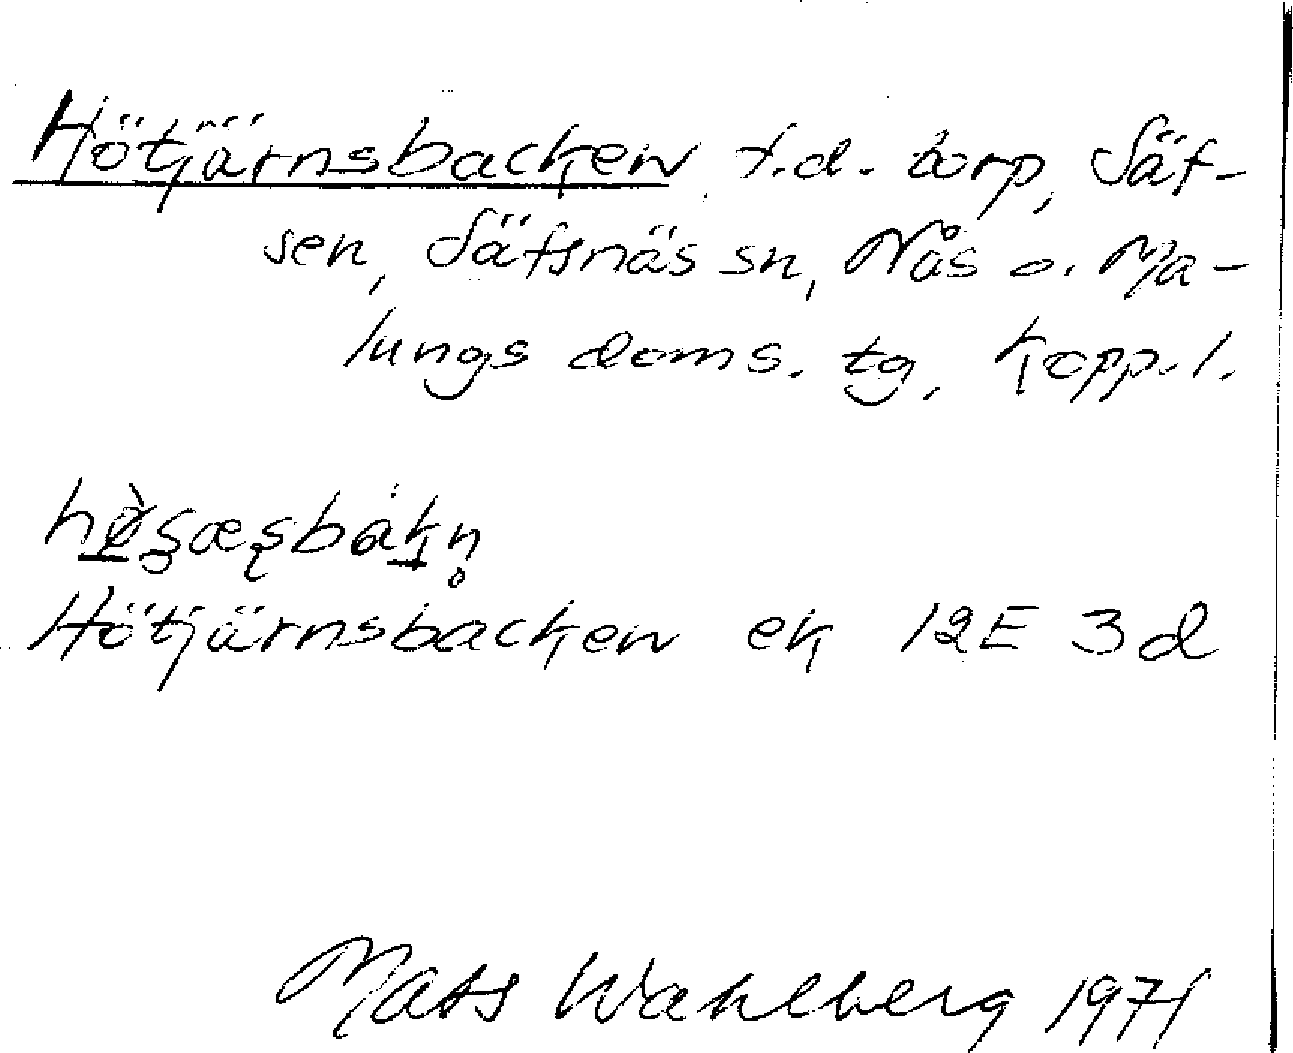 Hötjärnsbacken f.d. torp, Säf-
sen, Säfsnäs sn, Nås o. Ma-
lungs doms. tg, Kopp. l.
Hötjärnsbacken ek 12E 3d
Mats Wahlberg 1971